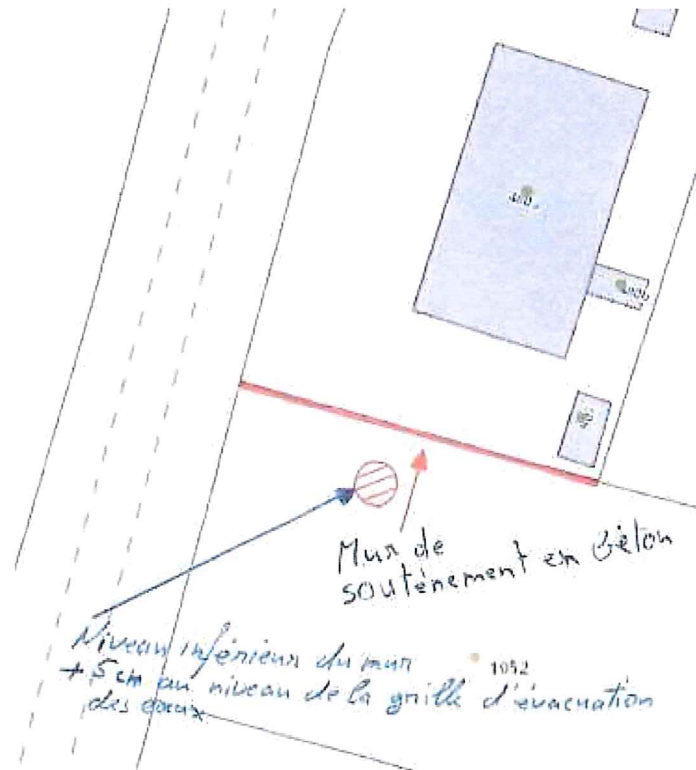 Mur de
soutènement en béton
Niveau inférieur du mur
1052
+ 5 cm au niveau de la grille d'évacuation
des eaux